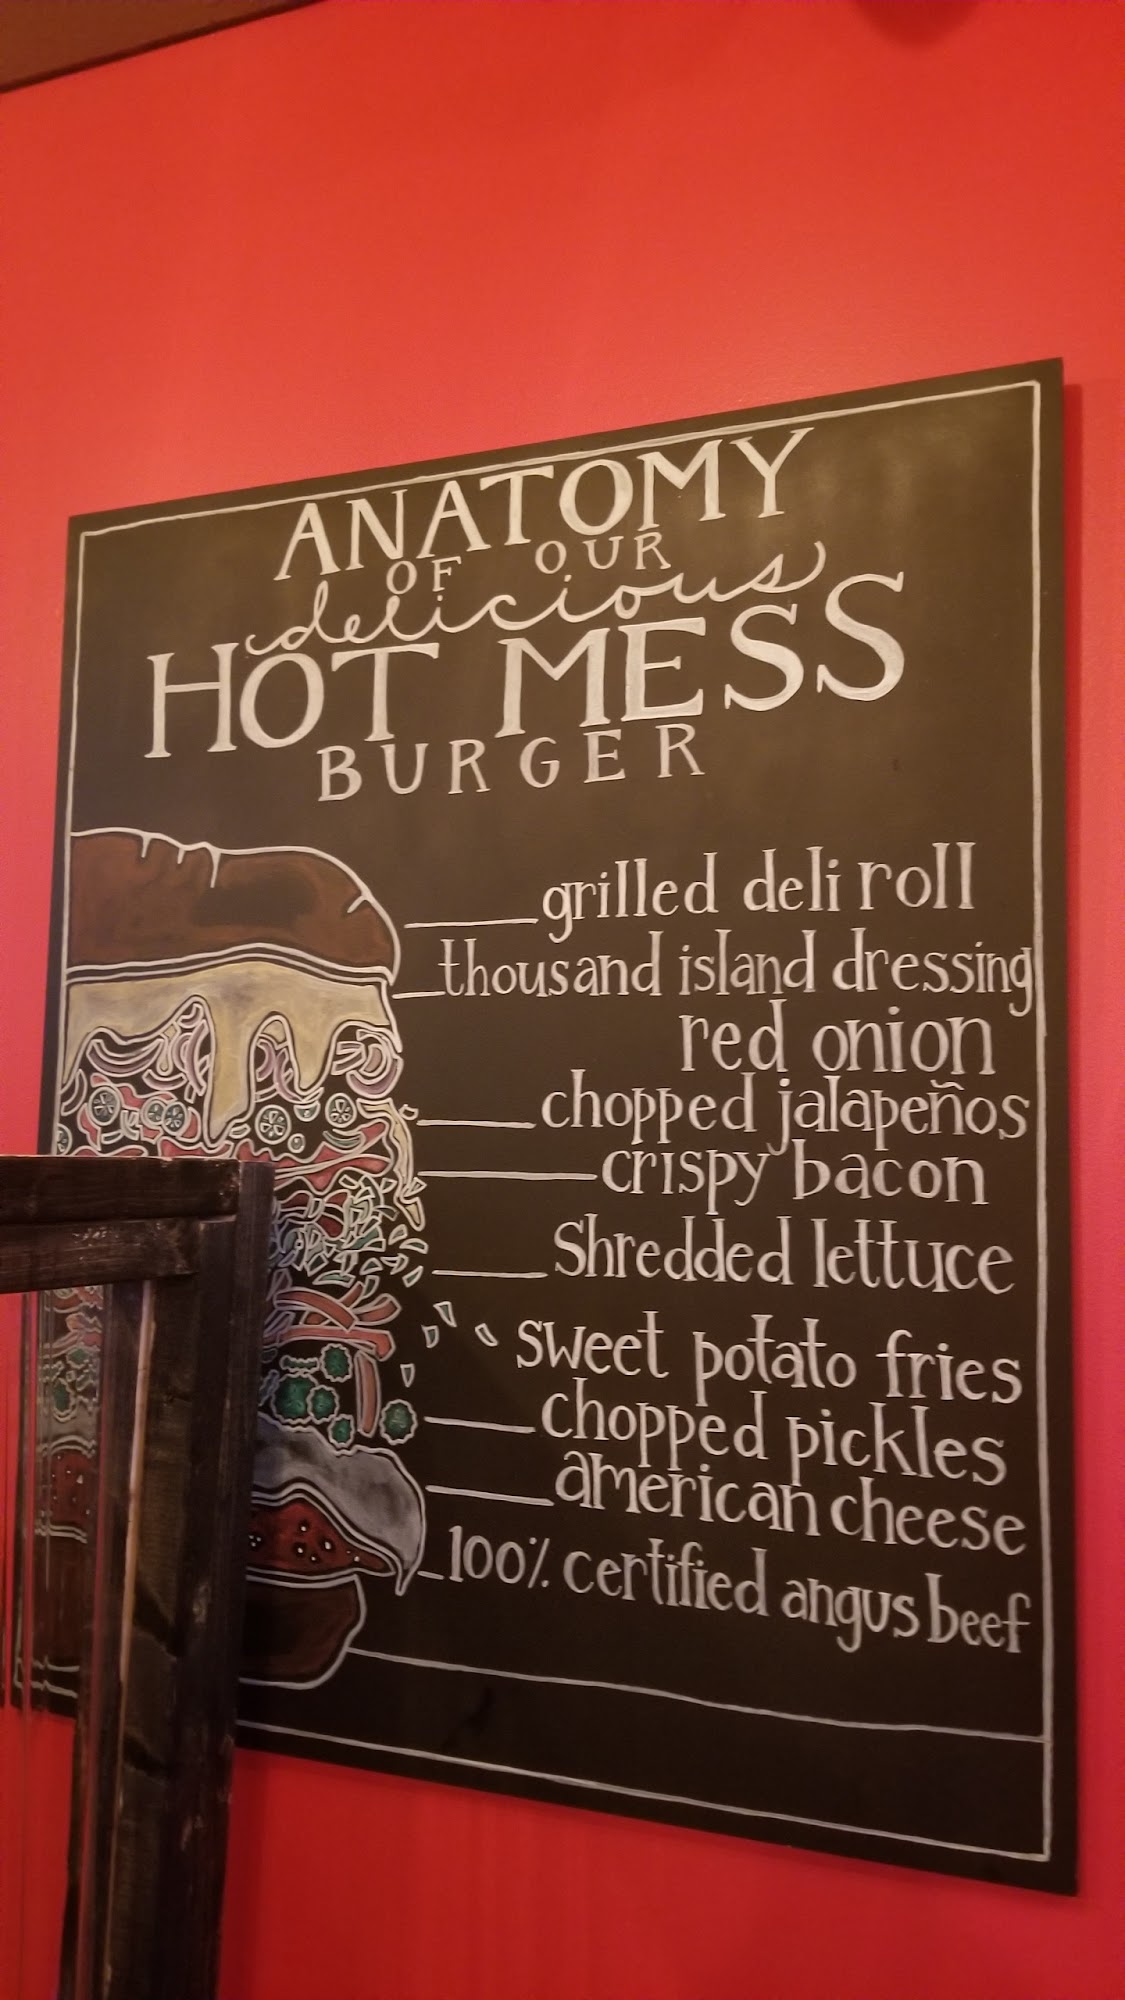 ANATOMY
OF OUR
delicious
HOT MESS
BURGER
grilled deli roll
thousand island dressing
red onion
chopped jalapeños
crispy bacon
Shredded lettuce
sweet potato fries
chopped pickles
american cheese
100% certified angus beef